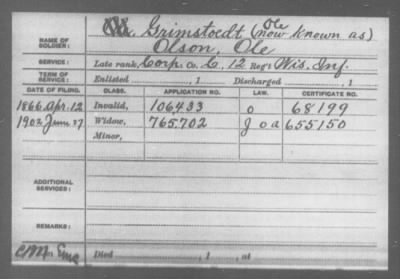 Ole
Grimstoedt (now known as)
NAME OF SOLDIER: Olson, Ole
SERVICE: Late rank, Corp. Co. C, 12 Reg't Wis. Inf.
TERM OF SERVICE: Enlisted , 1 Discharged , 1
DATE OF FILING. CLASS. APPLICATION NO. LAW. CERTIFICATE NO.
1866 Apr. 12 Invalid, 106,433 o 68199
1902 June 27 Widow, 765,702 655150
Minor,
ADDITIONAL SERVICES:
REMARKS:
Died , 1 , at